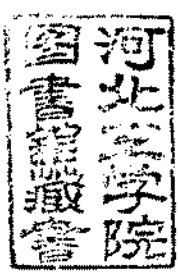 河北学院
图書館藏書